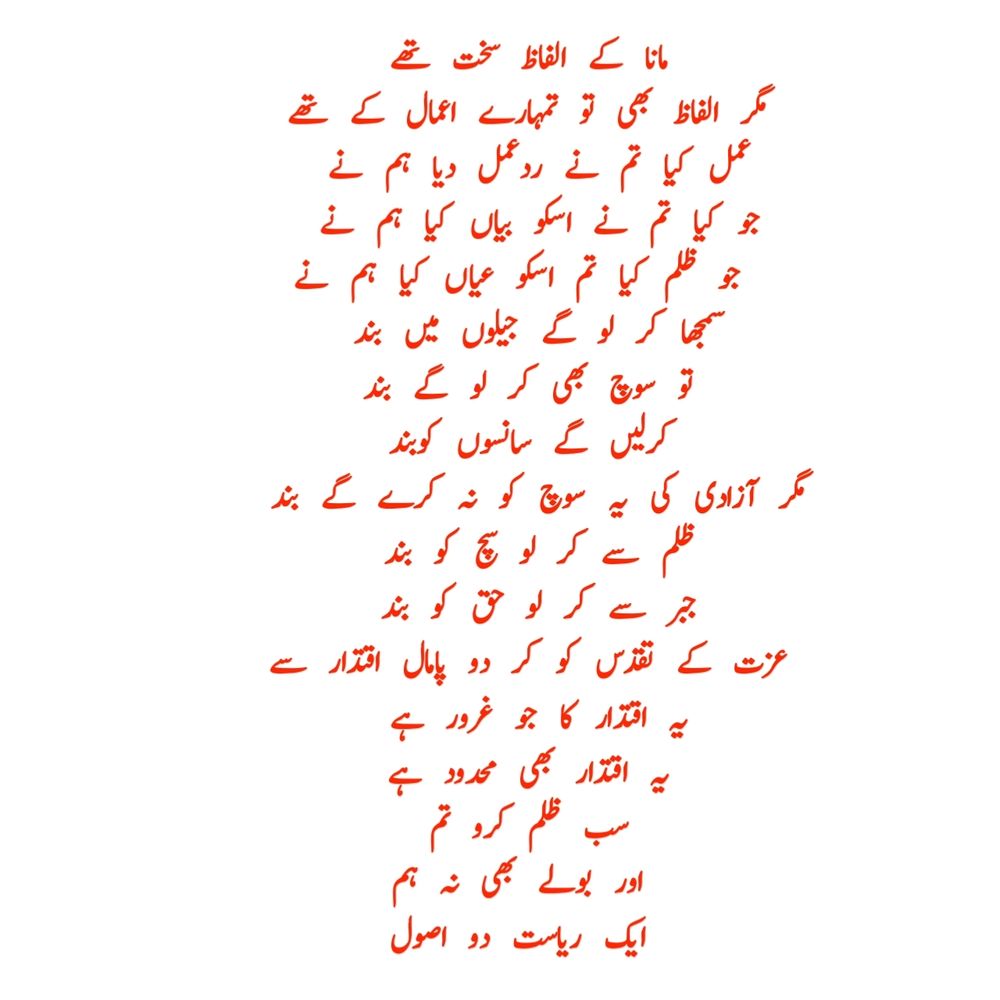 مانا کے الفاظ سخت تھے
مگر الفاظ بھی تو تمہارے اعمال کے تھے
عمل کیا تم نے ردعمل دیا ہم نے
جو کیا تم نے اسکو بیاں کیا ہم نے
جو ظلم کیا تم اسکو عیاں کیا ہم نے
سمجھا کر لو گے جیلوں میں بند
تو سوچ بھی کر لو گے بند
کرلیں گے سانسوں کوبند
مگر آزادی کی یہ سوچ کو نہ کرے گے بند
ظلم سے کر لو سچ کو بند
جبر سے کر لو حق کو بند
عزت کے تقدس کو کر دو پامال اقتدار سے
یہ اقتدار کا جو غرور ہے
یہ اقتدار بھی محدود ہے
سب ظلم کرو تم
اور بولے بھی نہ ہم
ایک ریاست دو اصول